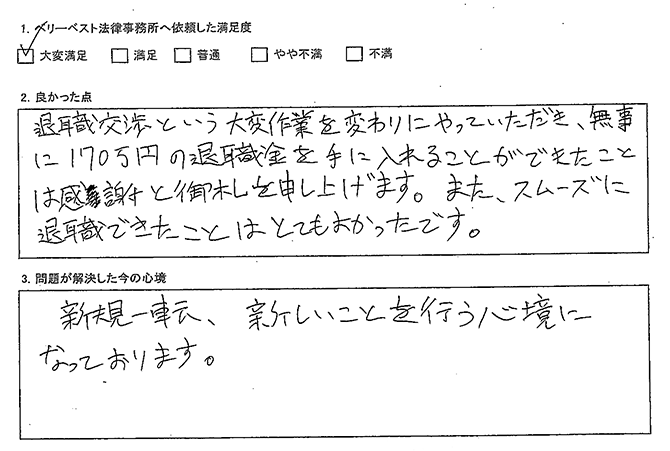 1. ベリーベスト法律事務所へ依頼した満足度
☑ 大変満足 □ 満足 □ 普通 □ やや不満 □ 不満
2. 良かった点
退職交渉という大変作業を変わりにやっていただき、無事
に170万円の退職金を手に入れることができたこと
は感謝と御礼を申し上げます。また、スムーズに
退職できたことはとてもよかったです。
3. 問題が解決した今の心境
新規一転、新しいことを行う心境に
なっております。